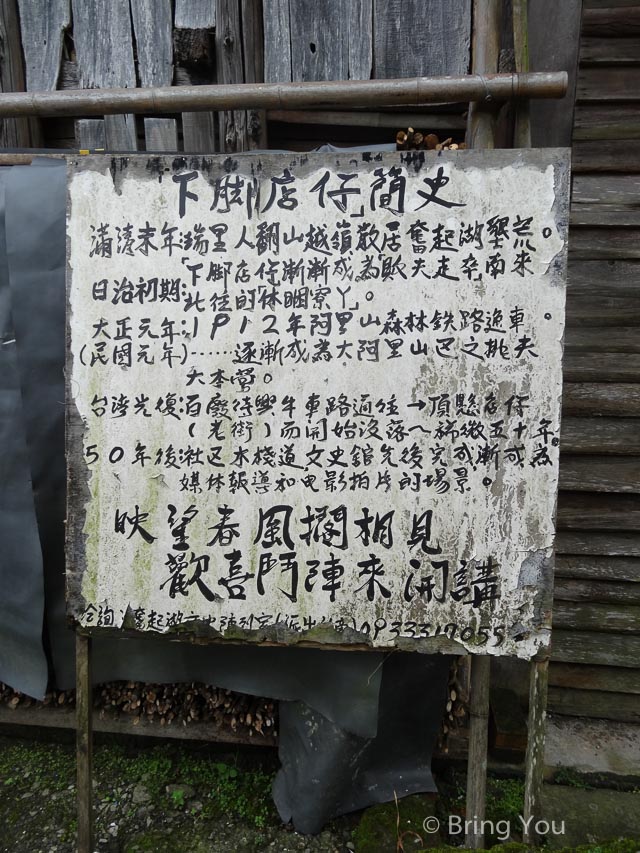 「下脚店仔」簡史
滿清末年:瑞里人翻山越嶺散居奮起湖墾荒。
日治初期:「下脚店仔」漸漸成為販夫走卒南來
北往的「休睏寮ㄚ」。
大正元年:1912年阿里山森林鉄路通車。
(民國元年)……逐漸成為大阿里山区之挑夫
大本營。
台湾光復:百廢待興牛車路過往→頂懸店仔
(老街)而開始沒落~稀微五十年。
50年後:社区木棧道,文史館先後完成漸成為
媒体報導和电影拍片的場景。
映望春風擱相見
歡喜鬥陣來開講
奮起湖文史陳列室
© Bring You